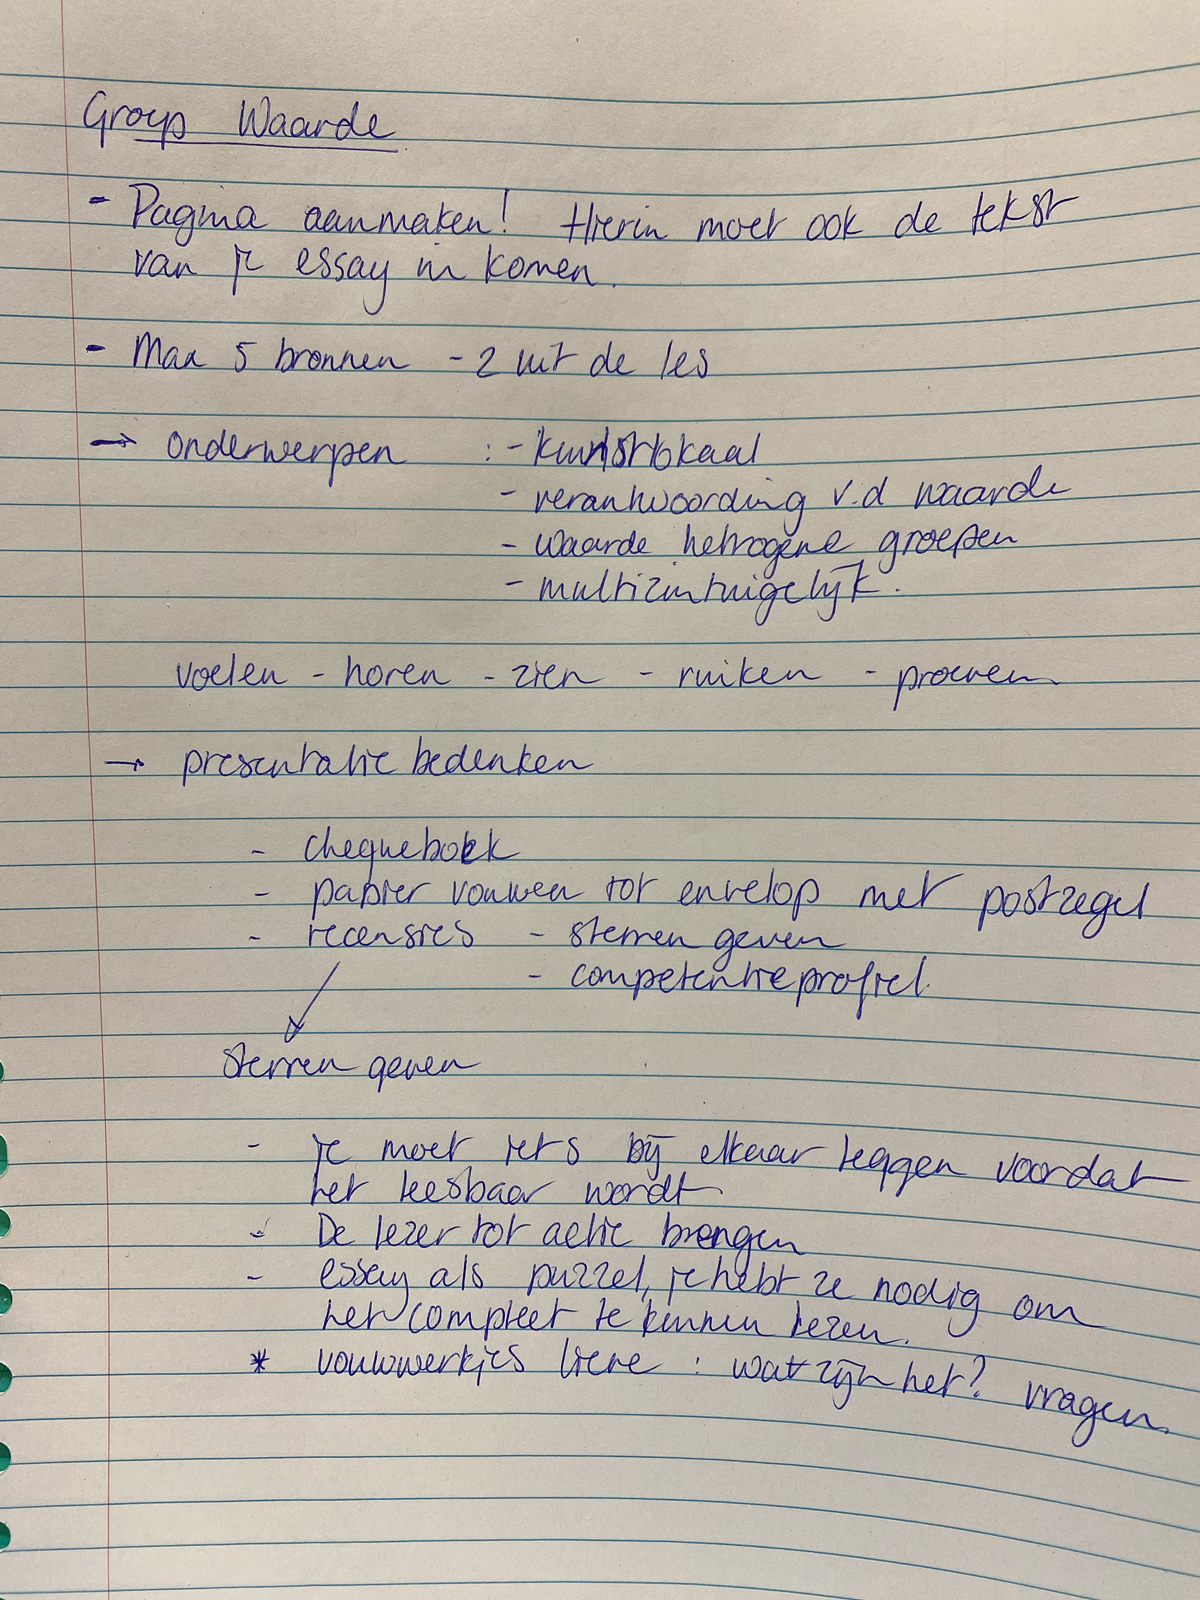 Groep Waarde
- Pagina aanmaken! Hierin moet ook de tekst
van je essay in komen.
- Max 5 bronnen - 2 uit de les
→ onderwerpen : - kunstlokaal
- verantwoording v.d waarde
- waarde hetrogene groepen
- multizintuigelijk.
voelen - horen - zien - ruiken - proeven.
→ presentatie bedenken
- chequeboek
- papier vouwen tot envelop met postzegel
- recensies - sterren geven
- competentieprofiel.
sterren geven
- je moet iets bij elkaar leggen voordat
het leesbaar wordt
- De lezer tot actie brengen
- essay als puzzel, je hebt ze nodig om
het compleet te kunnen lezen.
* vouwwerkjes liene : wat zijn het? vragen